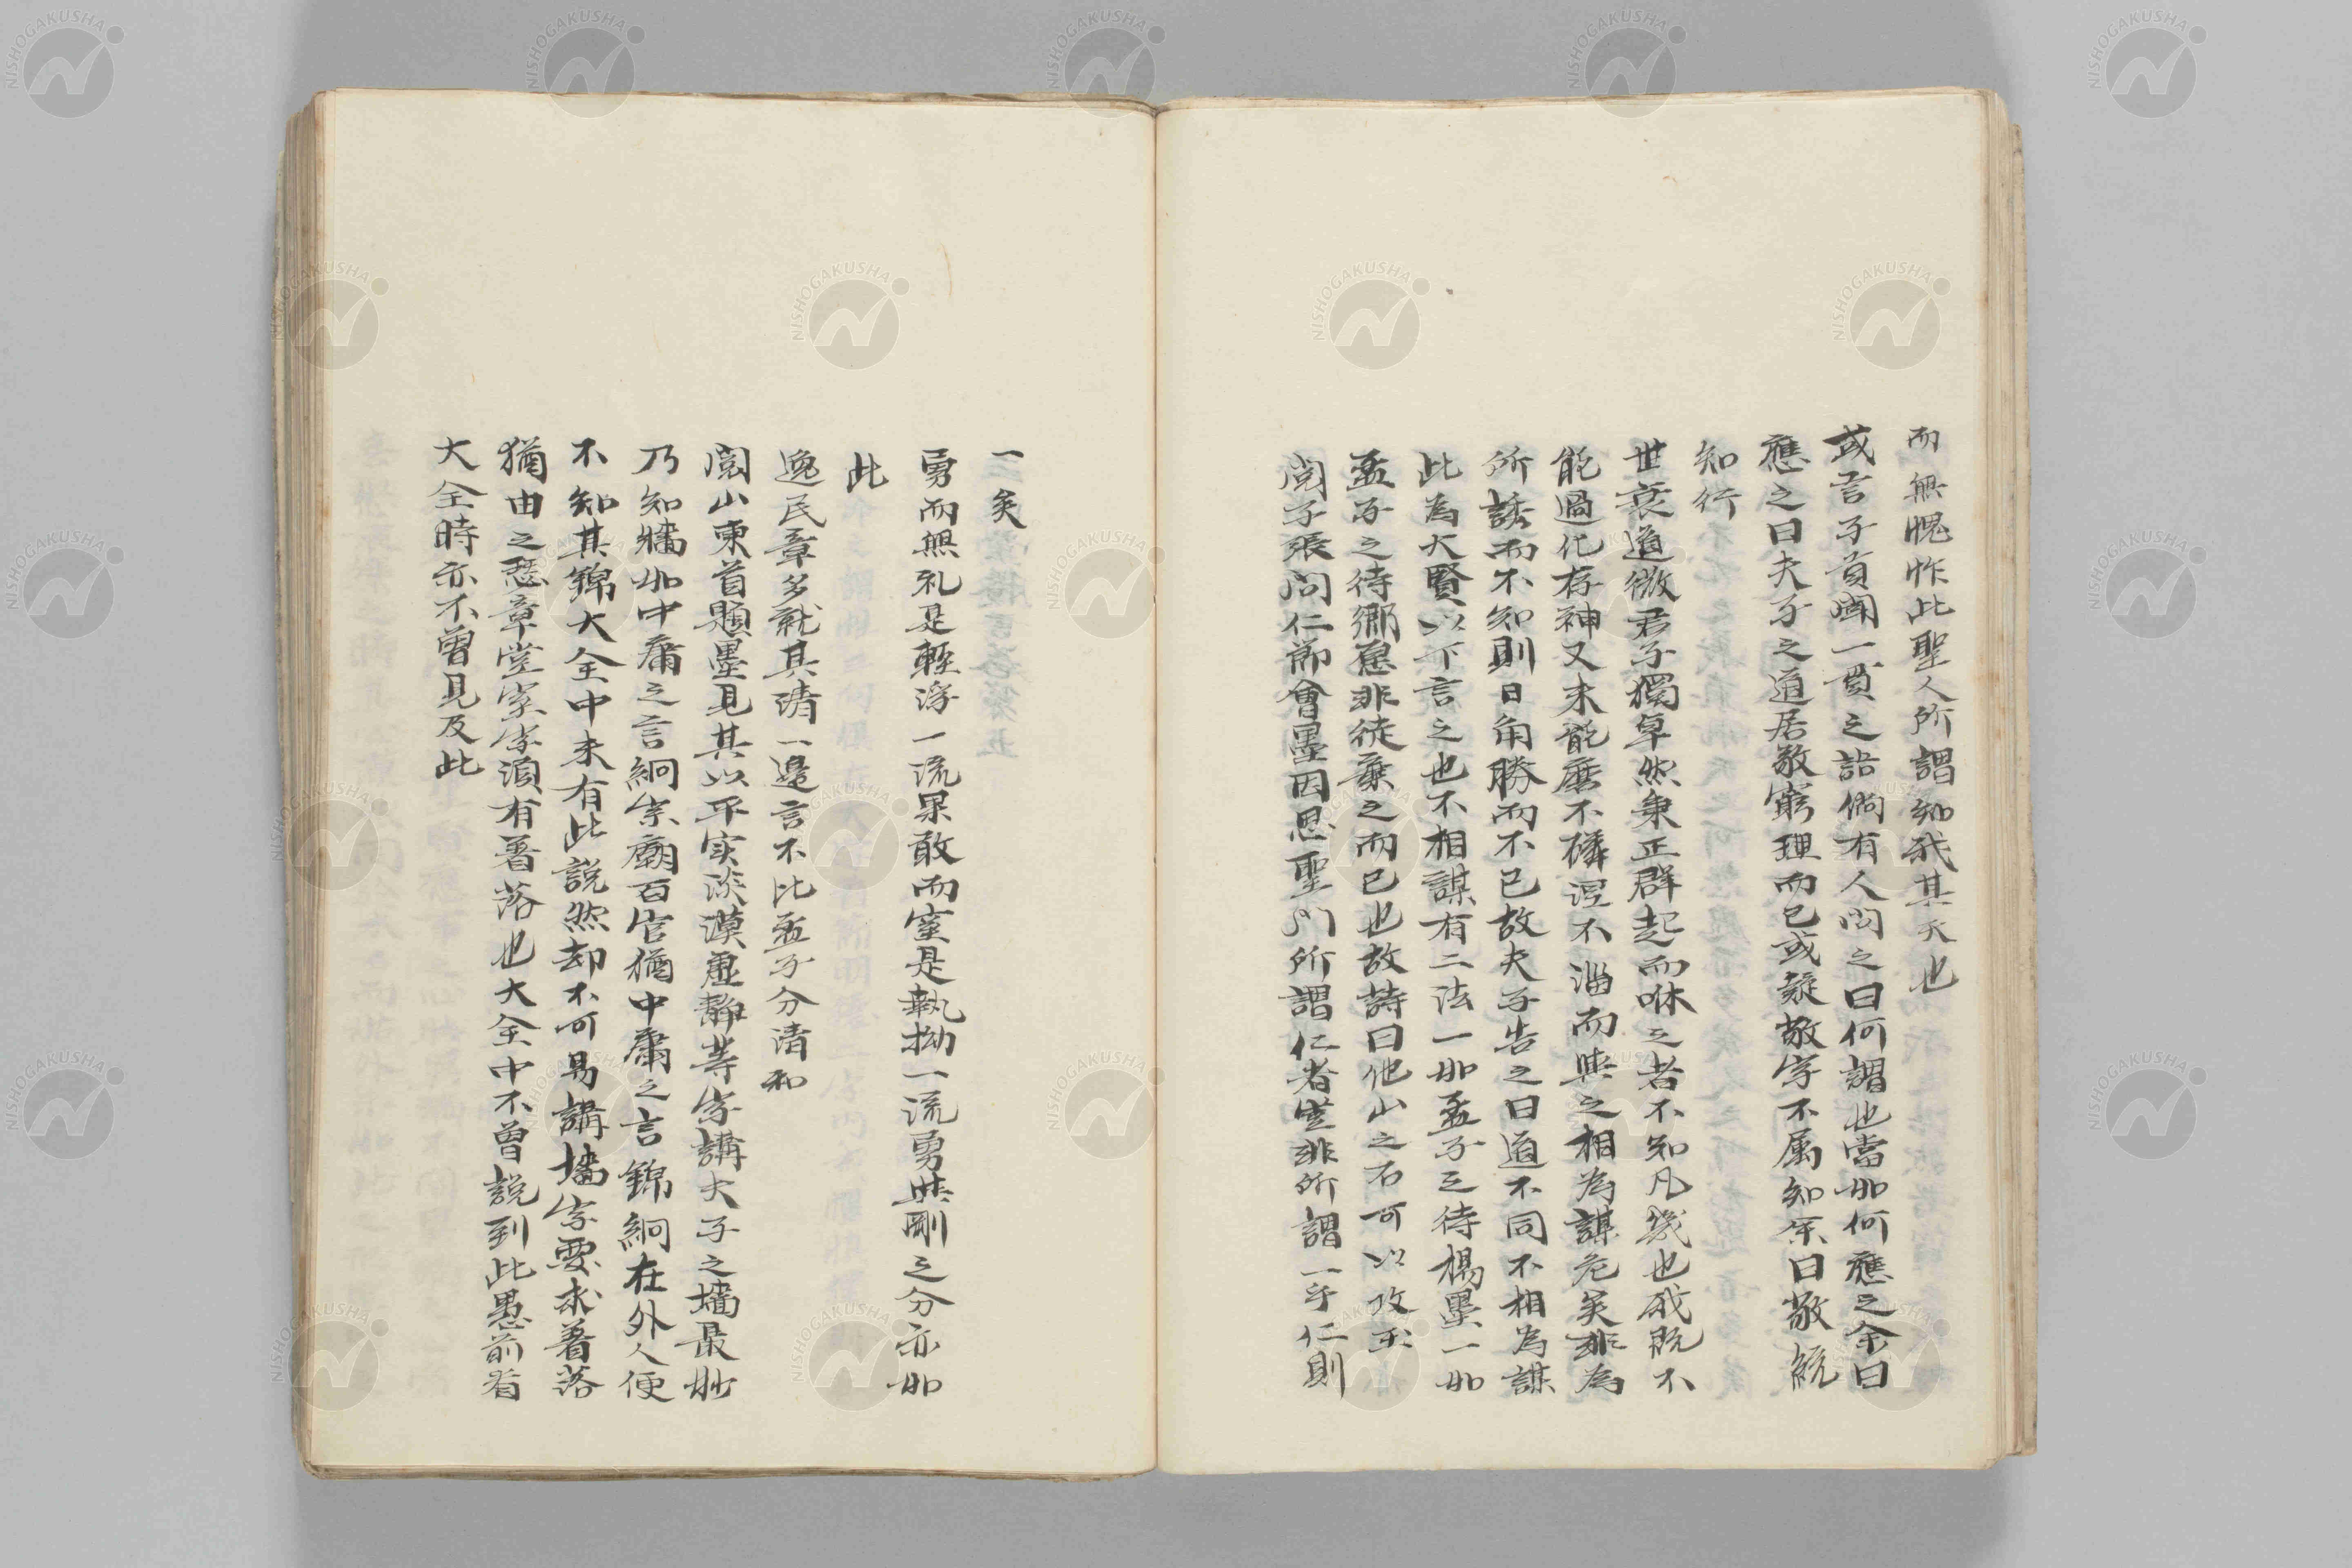 而無愧怍此聖人所謂知我其天也
或言子貢聞一貫之語倘有人問之曰何謂也當如何應之余曰
應之曰夫子之道居敬窮理而已或疑敬字不属知余曰敬統
知行
世衰道微君子獨卓然秉正群起而咻之者不知凡幾也我既不
能過化存神又未能磨不磷涅不淄而與之相為謀危矣非為
所誘而不知則日角勝而不已故夫子告之曰道不同不相為謀
此為大賢以下言之也不相謀有二法一如孟子之待楊墨一如
孟子之待鄉愿非徒棄之而已也故詩曰他山之石可以攻玉
閲子張問仁節會墨因思聖門所謂仁者豈非所謂一乎仁則
一矣
勇而無礼是輕浮一流果敢而窒是執拗一流勇與剛之分亦如
此
逸民章多就其清一邊言不比孟子分清和
閲山東首題墨見其以平実淡漠虛靜等字講夫子之墻最妙
乃知牆如中庸之言絅宗廟百官猶中庸之言錦絅在外人便
不知其錦大全中未有此説然却不可易講墻字要求著落
猶由之瑟章堂室字須有著落也大全中不曾説到此愚前看
大全時亦不曾見及此
NISHOGAKUSHA